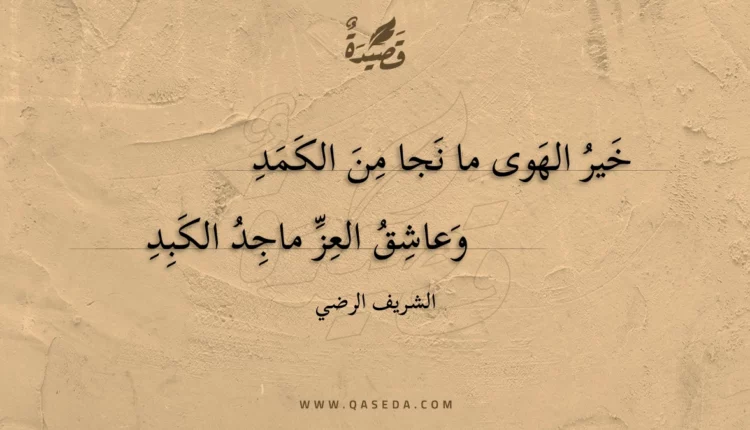 قَصِيدَةٌ
خَيرُ الهَوى ما نَجا مِنَ الكَمَدِ
وَعاشِقُ العِزِّ ماجِدُ الكَبِدِ
الشريف الرضي
WWW.QASEDA.COM